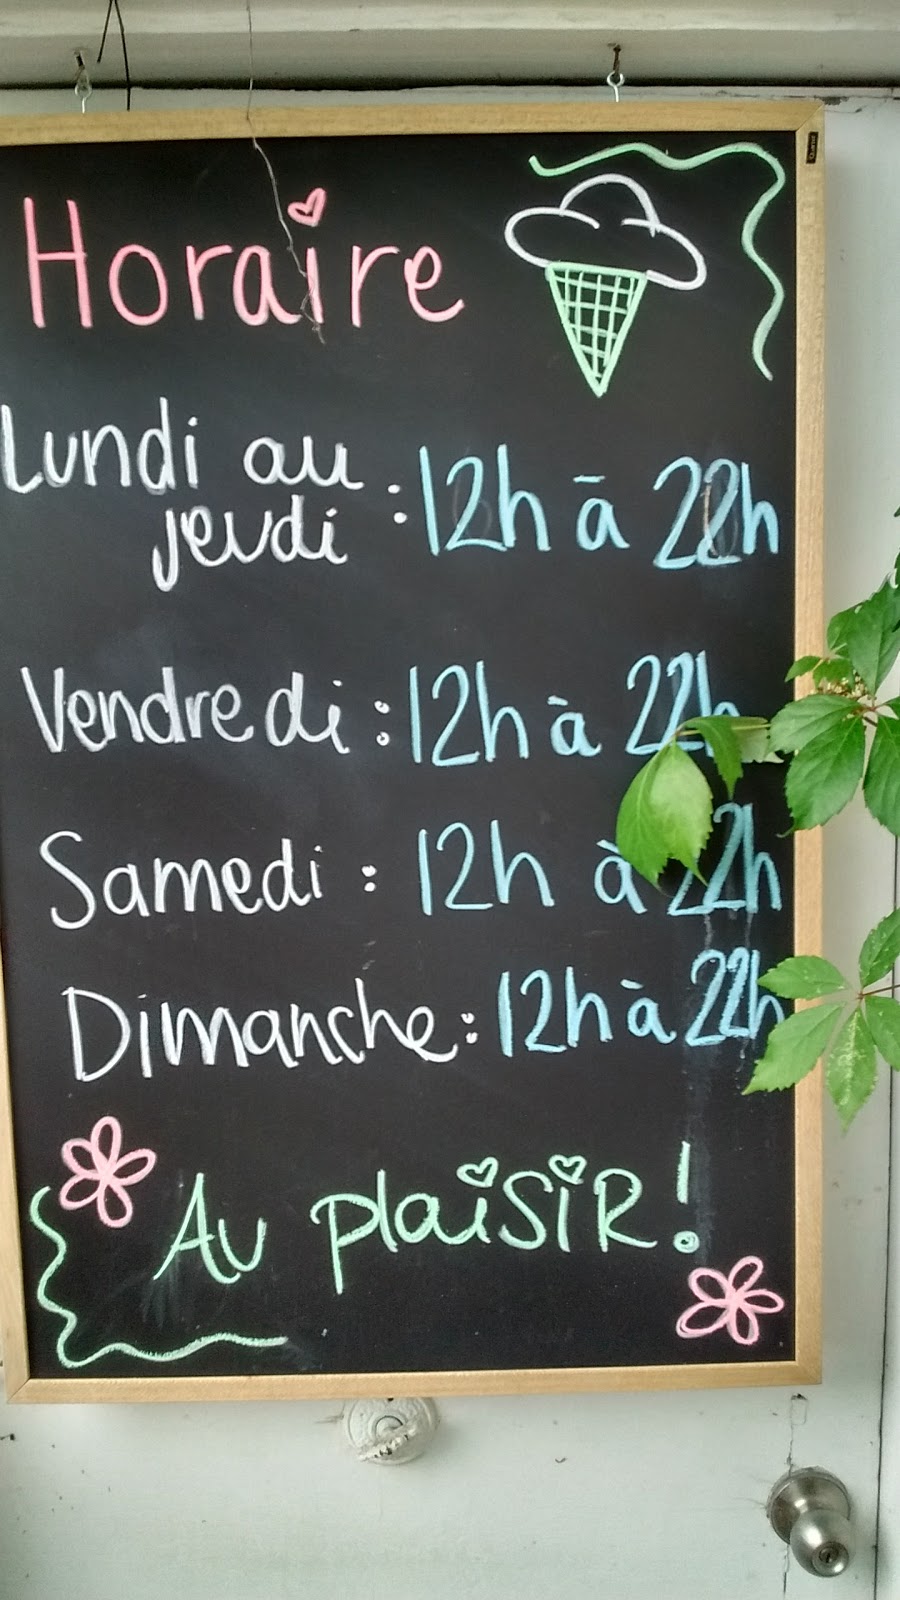 Horaire
Lundi au
jeudi : 12h à 22h
Vendredi : 12h à 22h
Samedi : 12h à 22h
Dimanche : 12h à 22h
Au plaisir !